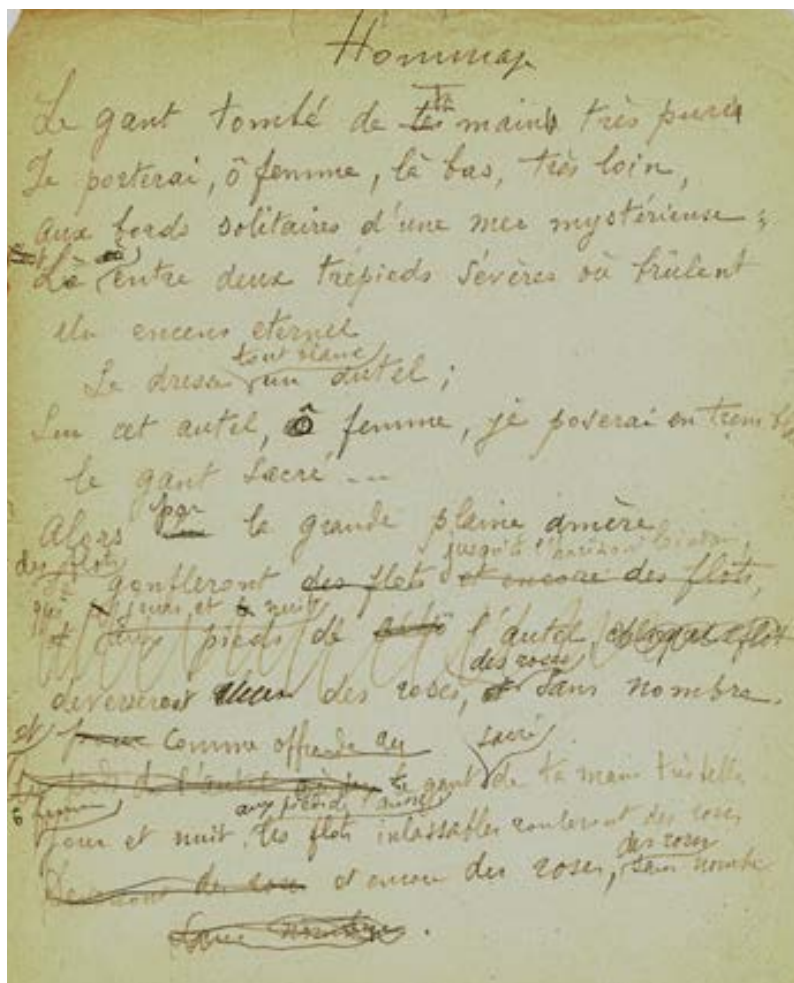 Hommage
Le gant tombé de ta main très pure
Je porterai, ô femme, là bas, très loin,
aux bords solitaires d'une mer mystérieuse ;
Là entre deux trépieds sévères où brûlent
un encens eternel
Je dresse tout blanc un autel ;
Sur cet autel, ô femme, je poserai en trembla
le gant sacré ...
Alors par la grande plaine amère
jusqu'à l'horizon
des flots gonfleront des flots et encore des flots,
jour et nuit
pieds de l'autel,
des roses
deverseront des roses, sans nombre.
et comme offrande au sacré
le gant de ta main très belle
ô femme
aux pieds
Jour et nuit, les flots inlassables rouleront des roses
des roses
et encore des roses, sans nombre